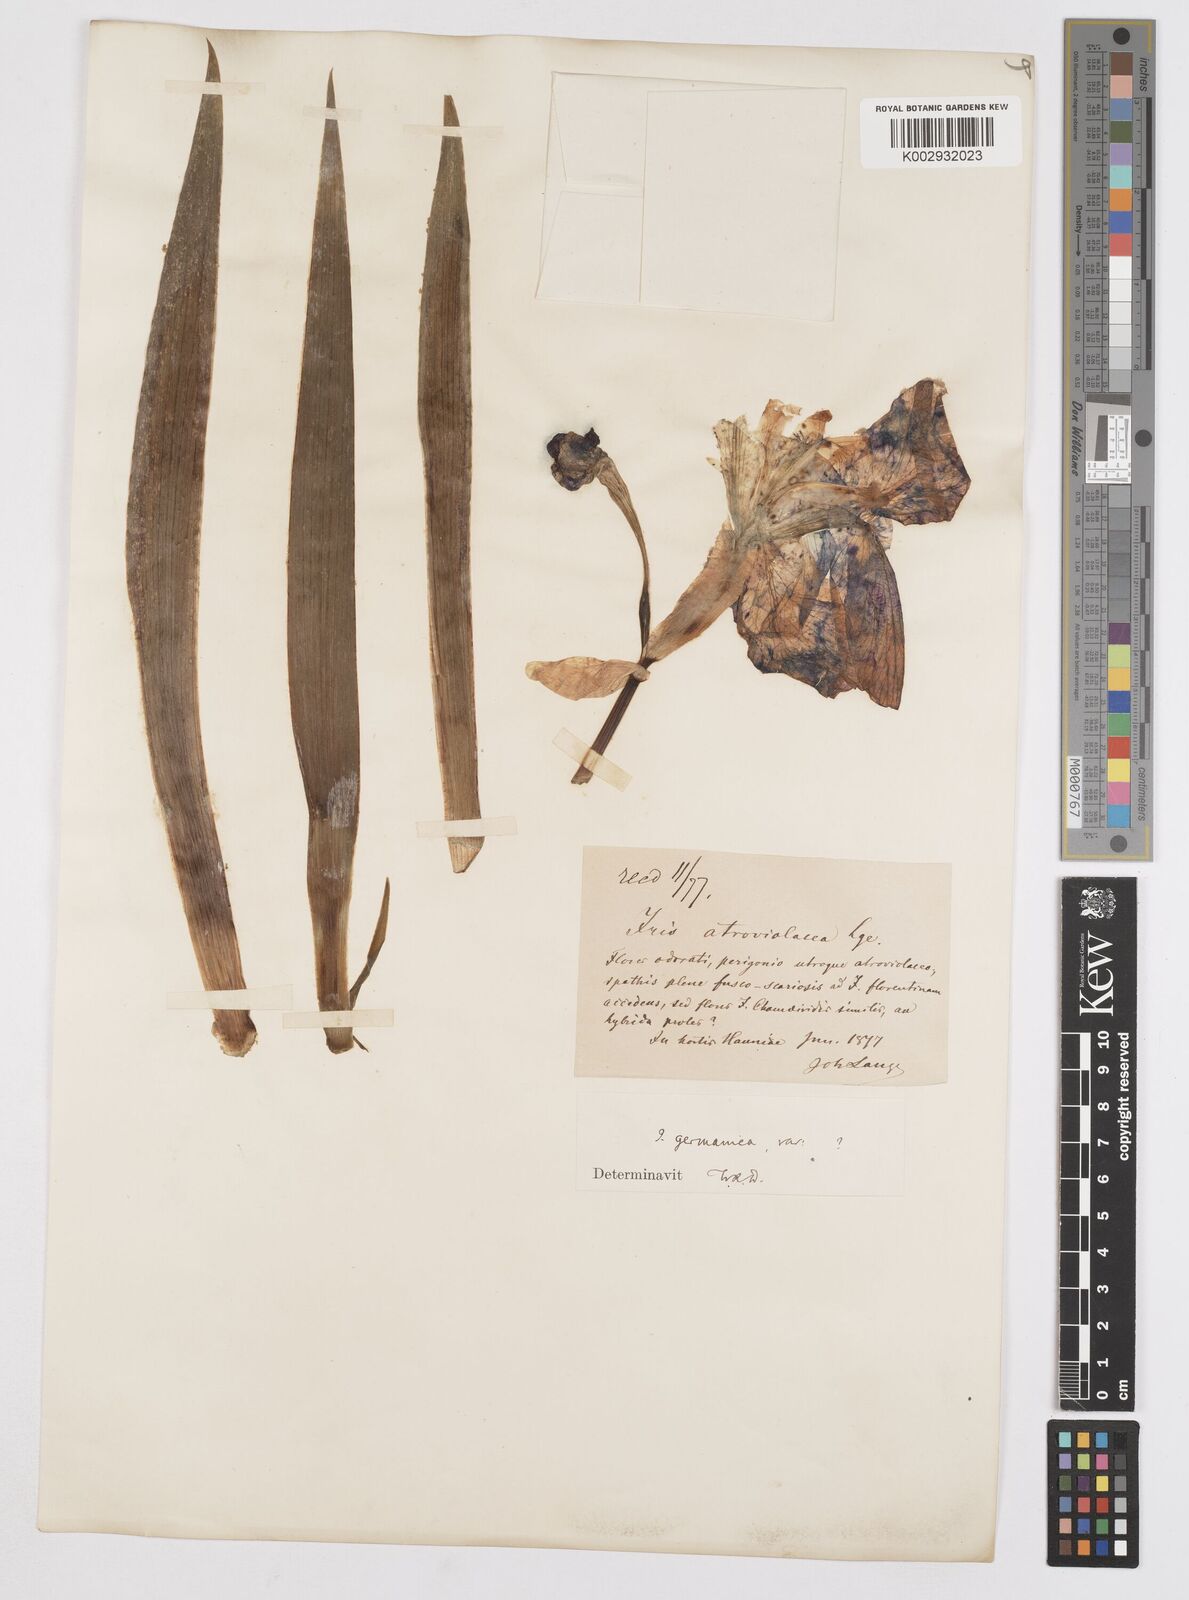 ROYAL BOTANIC GARDENS KEW
K002932023
recd 11/77.
Iris atroviolacea Lge.
Flores odorati, perigonio utroque atroviolaceo,
spathis plene fusco-scariosis ad I. florentinam
accedens, sed floris I. similis, an
hybrida proles?
In hortis Hauniae Jun. 1877
Joh Lange
I. germanica, var: ?
Determinavit W.R.D.
inches
Density
Don Williams
M000767
centimeters
Royal Botanic Gardens
Kew
copyright reserved
10
9
8
7
6
5
4
3
2
1
0
cm